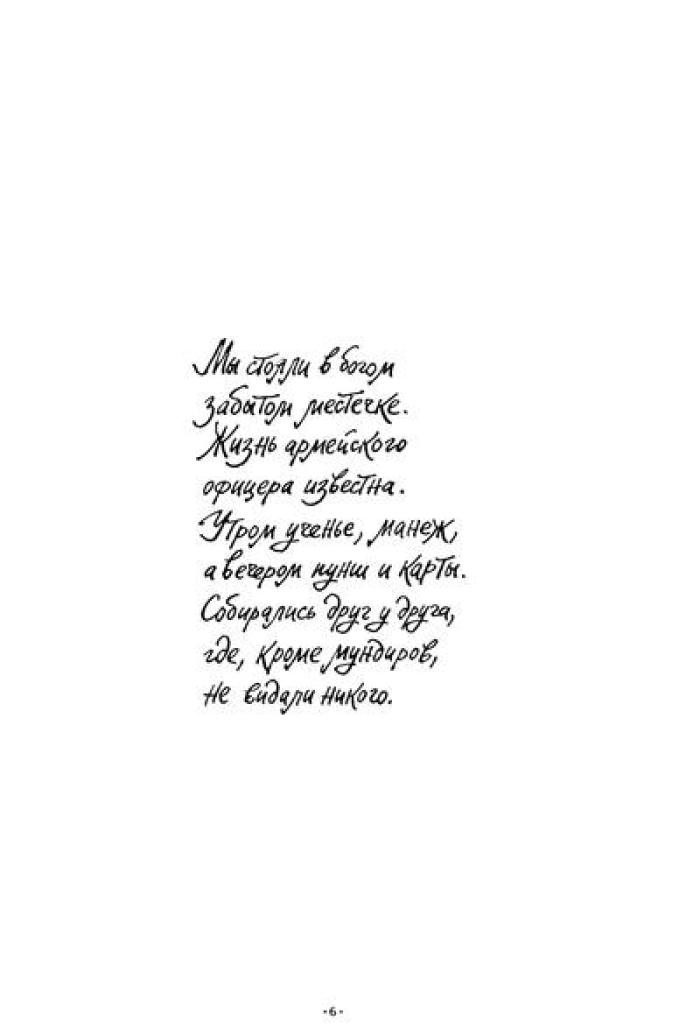 Мы стояли в богом
забытом местечке.
Жизнь армейского
офицера известна.
Утром ученье, манеж,
а вечером пунш и карты.
Собирались друг у друга,
где, кроме мундиров,
не видали никого.
·6·